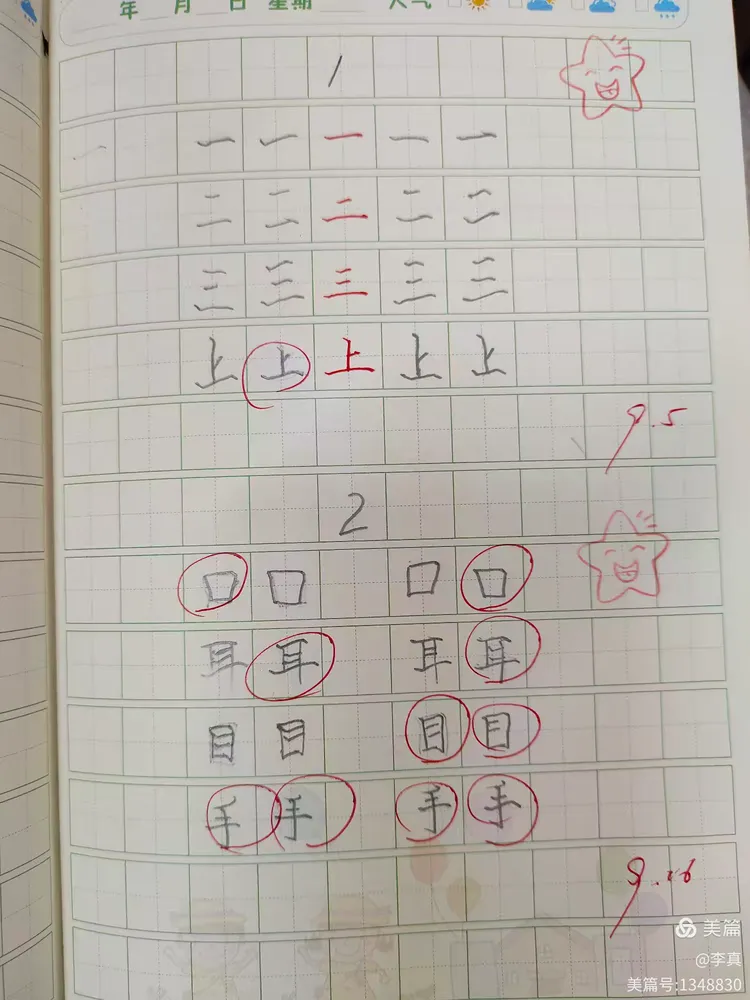 年 月 日 星期 天气
1
一 一 一 一 一 一
二 二 二 二 二
三 三 三 三 三
上 上 上 上 上
9.5
2
口 口 口 口
耳 耳 耳 耳
目 目 目 目
手 手 手 手
9.16
美篇
@李真
美篇号:1348830